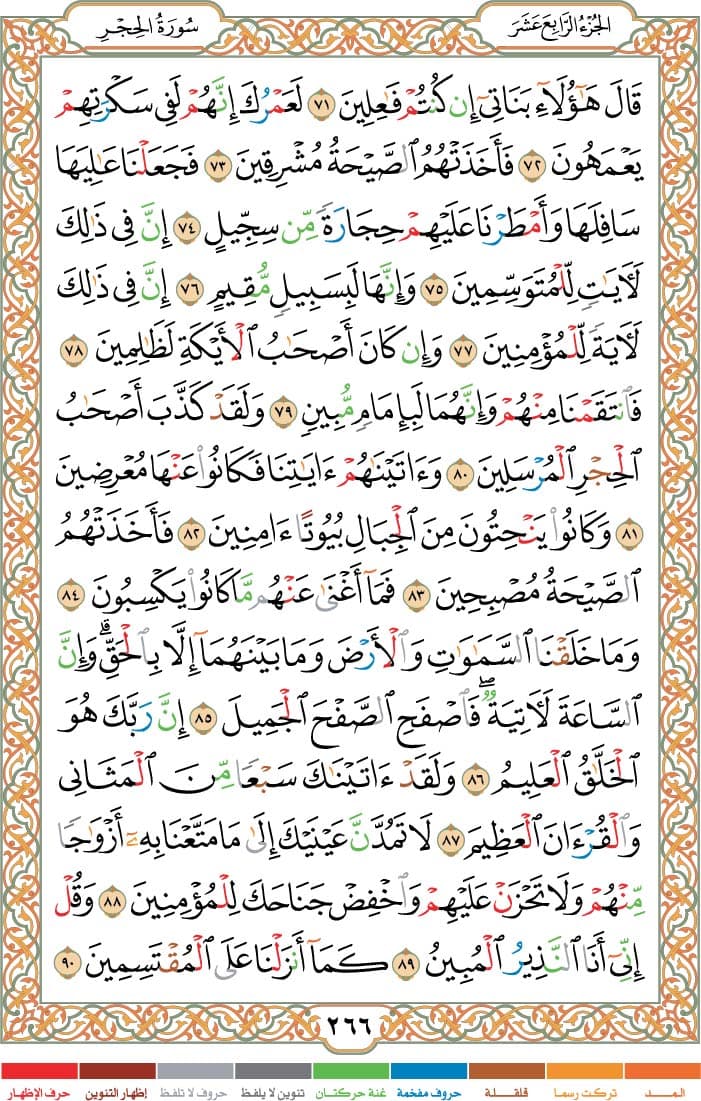 الجُزْءُ الرَّابِعَ عَشَرَ
سُورَةُ الحِجْرِ
قَالَ هَٰٓؤُلَآءِ بَنَاتِيٓ إِن كُنتُمْ فَٰعِلِينَ ٧١ لَعَمْرُكَ إِنَّهُمْ لَفِي سَكْرَتِهِمْ
يَعْمَهُونَ ٧٢ فَأَخَذَتْهُمُ ٱلصَّيْحَةُ مُشْرِقِينَ ٧٣ فَجَعَلْنَا عَٰلِيَهَا
سَافِلَهَا وَأَمْطَرْنَا عَلَيْهِمْ حِجَارَةً مِّن سِجِّيلٍ ٧٤ إِنَّ فِي ذَٰلِكَ
لَأٓيَٰتٍ لِّلْمُتَوَسِّمِينَ ٧٥ وَإِنَّهَا لَبِسَبِيلٍ مُّقِيمٍ ٧٦ إِنَّ فِي ذَٰلِكَ
لَأٓيَةً لِّلْمُؤْمِنِينَ ٧٧ وَإِن كَانَ أَصْحَٰبُ ٱلْأَيْكَةِ لَظَٰلِمِينَ ٧٨
فَٱنتَقَمْنَا مِنْهُمْ وَإِنَّهُمَا لَبِإِمَامٍ مُّبِينٍ ٧٩ وَلَقَدْ كَذَّبَ أَصْحَٰبُ
ٱلْحِجْرِ ٱلْمُرْسَلِينَ ٨٠ وَءَاتَيْنَٰهُمْ ءَايَٰتِنَا فَكَانُوا۟ عَنْهَا مُعْرِضِينَ
٨١ وَكَانُوا۟ يَنْحِتُونَ مِنَ ٱلْجِبَالِ بُيُوتًا ءَامِنِينَ ٨٢ فَأَخَذَتْهُمُ
ٱلصَّيْحَةُ مُصْبِحِينَ ٨٣ فَمَآ أَغْنَىٰ عَنْهُم مَّا كَانُوا۟ يَكْسِبُونَ ٨٤
وَمَا خَلَقْنَا ٱلسَّمَٰوَٰتِ وَٱلْأَرْضَ وَمَا بَيْنَهُمَآ إِلَّا بِٱلْحَقِّ ۗ وَإِنَّ
ٱلسَّاعَةَ لَأٓتِيَةٌ ۖ فَٱصْفَحِ ٱلصَّفْحَ ٱلْجَمِيلَ ٨٥ إِنَّ رَبَّكَ هُوَ
ٱلْخَلَّٰقُ ٱلْعَلِيمُ ٨٦ وَلَقَدْ ءَاتَيْنَٰكَ سَبْعًا مِّنَ ٱلْمَثَانِي
وَٱلْقُرْءَانَ ٱلْعَظِيمَ ٨٧ لَا تَمُدَّنَّ عَيْنَيْكَ إِلَىٰ مَا مَتَّعْنَا بِهِۦٓ أَزْوَٰجًا
مِّنْهُمْ وَلَا تَحْزَنْ عَلَيْهِمْ وَٱخْفِضْ جَنَاحَكَ لِلْمُؤْمِنِينَ ٨٨ وَقُلْ
إِنِّيٓ أَنَا ٱلنَّذِيرُ ٱلْمُبِينُ ٨٩ كَمَآ أَنزَلْنَا عَلَى ٱلْمُقْتَسِمِينَ ٩٠
٢٦٦
المـــد تركت رسما قلقـلة حروف مفخمة غنة حركتان تنوين لا يلفظ حروف لا تلفظ إظهار التنوين حرف الإظهار